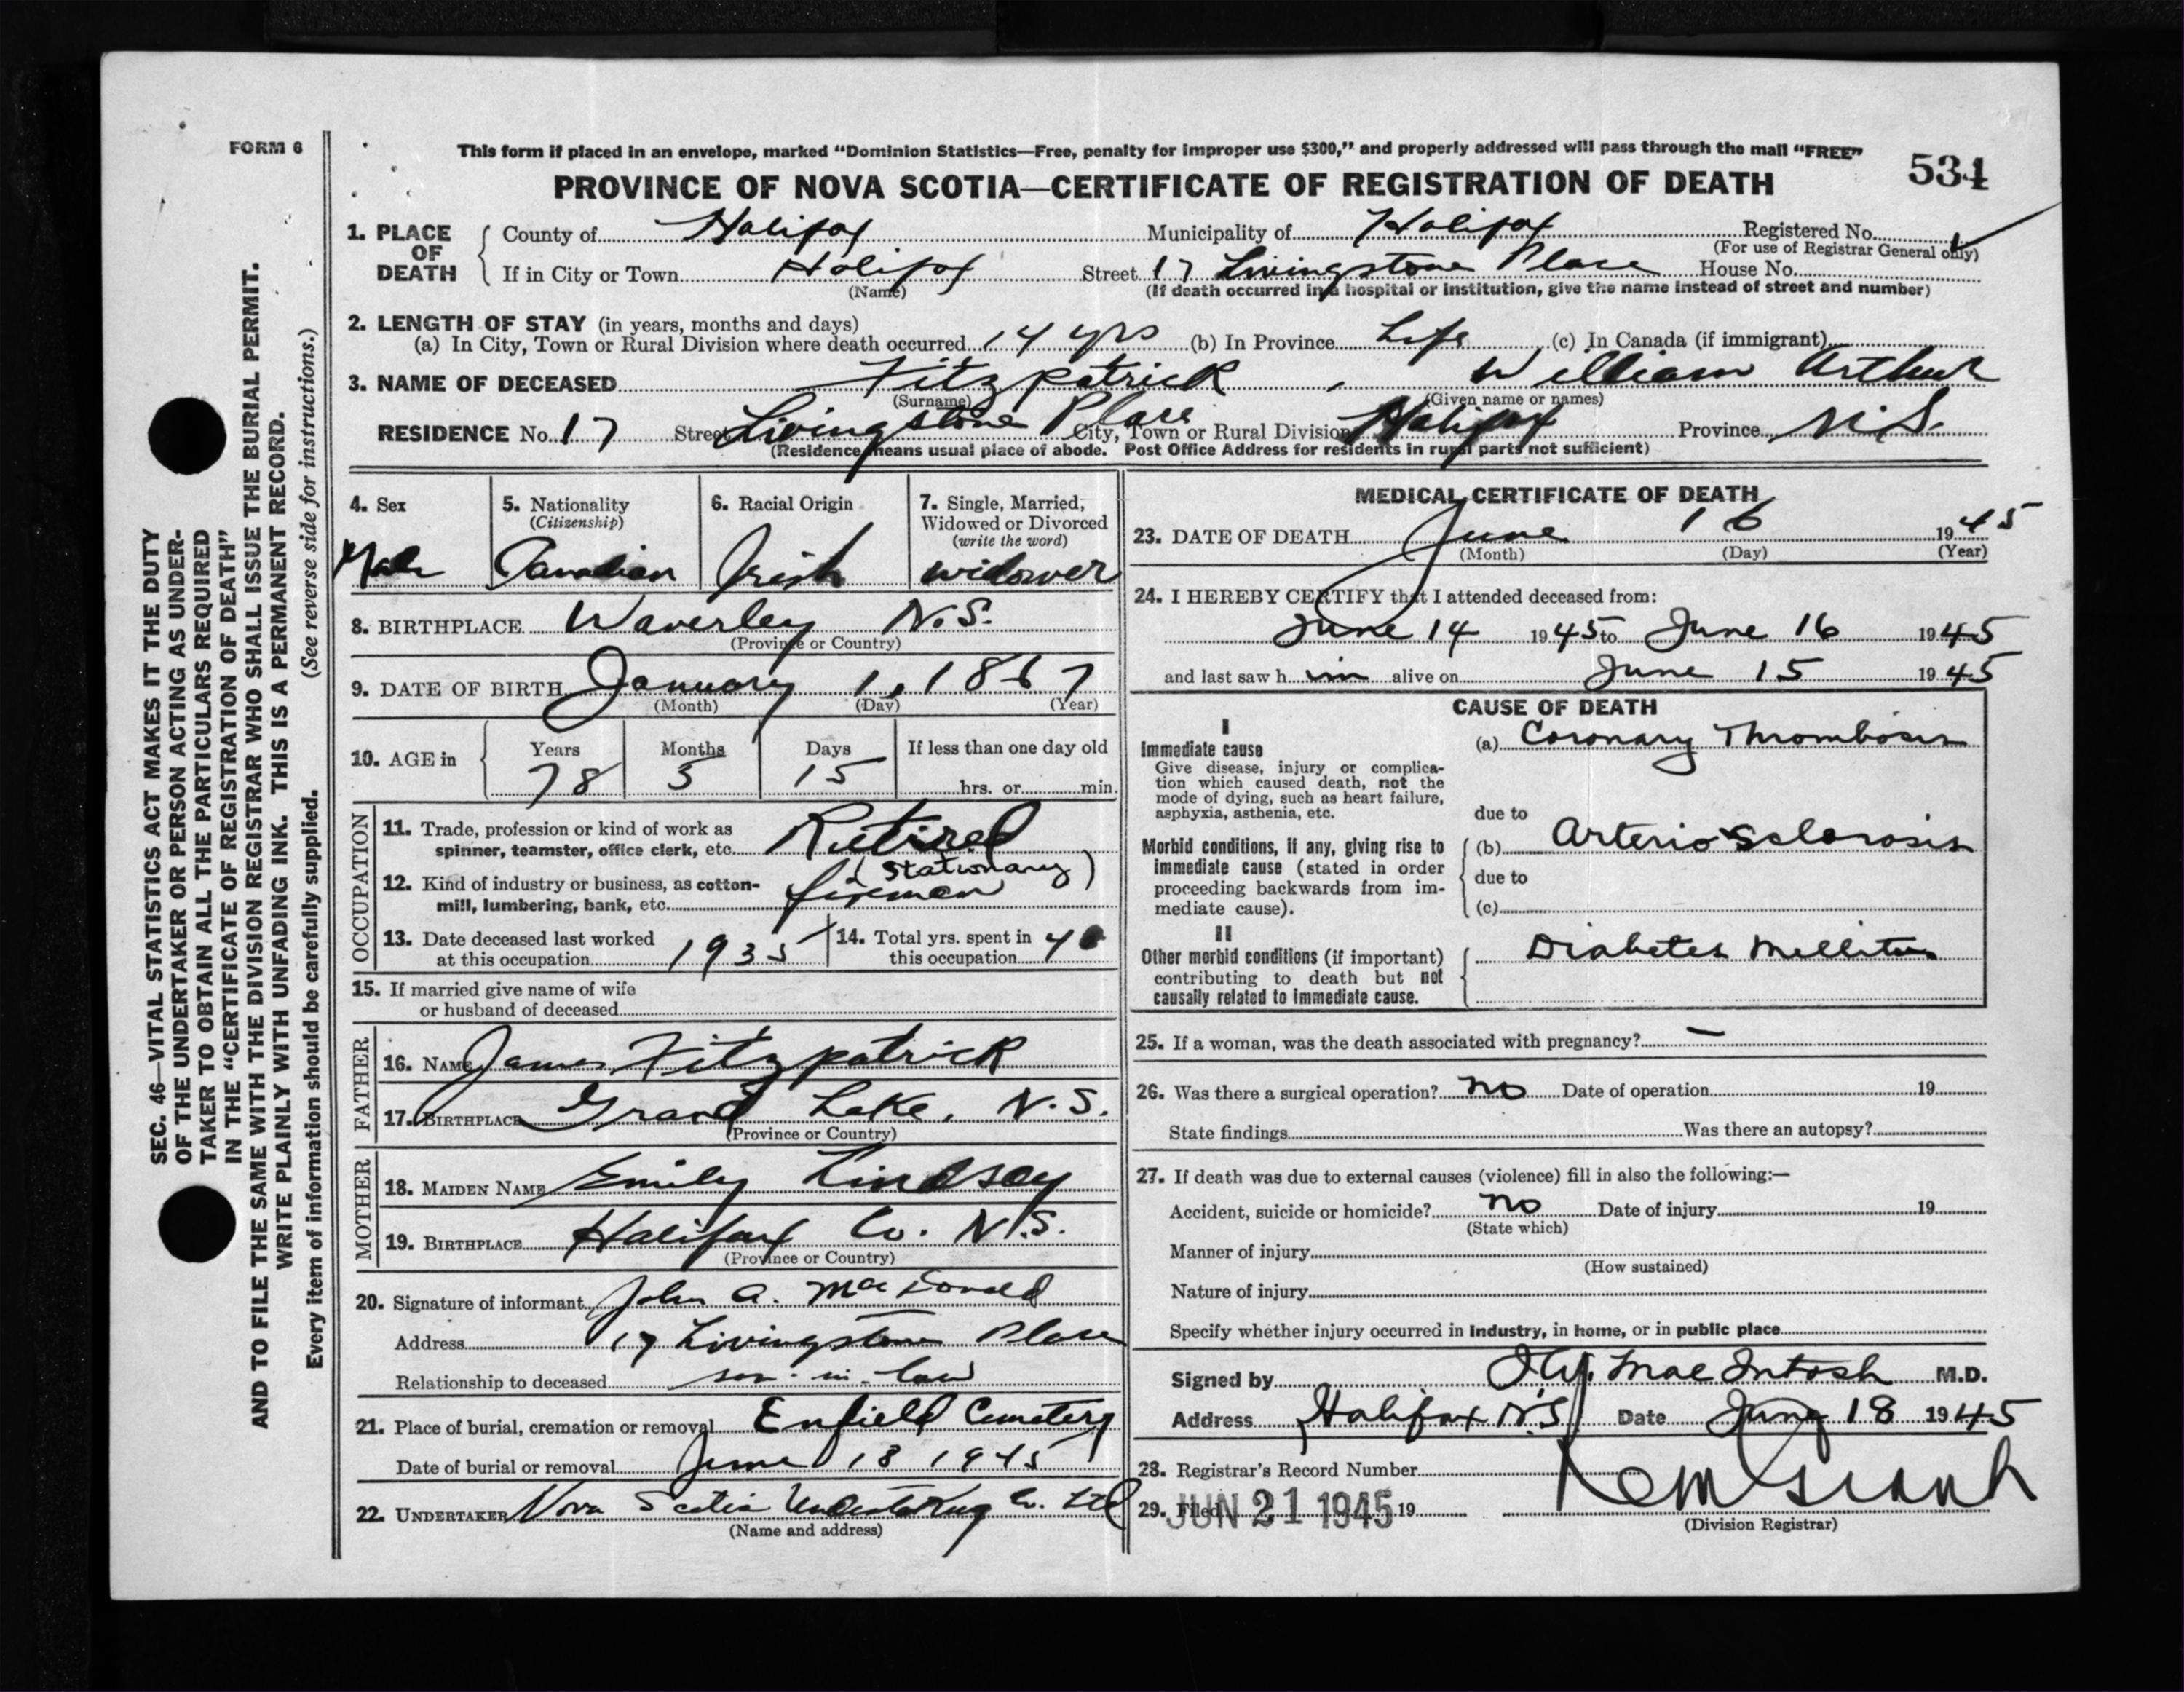 FORM 6
This form if placed in an envelope, marked "Dominion Statistics—Free, penalty for improper use $300," and properly addressed will pass through the mail "FREE"
534
PROVINCE OF NOVA SCOTIA—CERTIFICATE OF REGISTRATION OF DEATH
1. PLACE OF DEATH
County of Halifax Municipality of Halifax Registered No.
(For use of Registrar General only)
If in City or Town Halifax Street 17 Livingstone Place House No.
(Name) (If death occurred in a hospital or institution, give the name instead of street and number)
2. LENGTH OF STAY (in years, months and days)
(a) In City, Town or Rural Division where death occurred 14 yrs (b) In Province Life (c) In Canada (if immigrant)
3. NAME OF DECEASED Fitzpatrick, William Arthur
(Surname) (Given name or names)
RESIDENCE No. 17 Street Livingstone Place City, Town or Rural Division Halifax Province N.S.
(Residence means usual place of abode. Post Office Address for residents in rural parts not sufficient)
4. Sex
Male
5. Nationality
(Citizenship)
Canadian
6. Racial Origin
Irish
7. Single, Married,
Widowed or Divorced
(write the word)
widower
8. BIRTHPLACE Waverley N.S.
(Province or Country)
9. DATE OF BIRTH January 1, 1867
(Month) (Day) (Year)
10. AGE in
Years Months Days If less than one day old
78 5 15 hrs. or min.
OCCUPATION
11. Trade, profession or kind of work as
spinner, teamster, office clerk, etc. Retired
(Stationary)
12. Kind of industry or business, as cotton-
mill, lumbering, bank, etc. fireman
13. Date deceased last worked
at this occupation 1935
14. Total yrs. spent in
this occupation 40
15. If married give name of wife
or husband of deceased
FATHER
16. NAME James Fitzpatrick
17. BIRTHPLACE Grand Lake, N.S.
(Province or Country)
MOTHER
18. MAIDEN NAME Emily Lindsay
19. BIRTHPLACE Halifax Co. N.S.
(Province or Country)
20. Signature of informant John A. MacDonald
Address 17 Livingstone Place
Relationship to deceased son-in-law
21. Place of burial, cremation or removal Enfield Cemetery
Date of burial or removal June 18 1945
22. UNDERTAKER Nova Scotia Undertaking Co. Ltd
(Name and address)
MEDICAL CERTIFICATE OF DEATH
23. DATE OF DEATH June 16 1945
(Month) (Day) (Year)
24. I HEREBY CERTIFY that I attended deceased from:
June 14 1945 to June 16 1945
and last saw h im alive on June 15 1945
CAUSE OF DEATH
I
Immediate cause
Give disease, injury or complica-
tion which caused death, not the
mode of dying, such as heart failure,
asphyxia, asthenia, etc.
(a) Coronary Thrombosis
due to
Morbid conditions, if any, giving rise to
immediate cause (stated in order
proceeding backwards from im-
mediate cause).
(b) Arterio sclerosis
due to
(c)
II
Other morbid conditions (if important)
contributing to death but not
causally related to immediate cause.
Diabetes Mellitus
25. If a woman, was the death associated with pregnancy? —
26. Was there a surgical operation? no Date of operation 19
State findings Was there an autopsy?
27. If death was due to external causes (violence) fill in also the following:—
Accident, suicide or homicide? no Date of injury 19
(State which)
Manner of injury
(How sustained)
Nature of injury
Specify whether injury occurred in industry, in home, or in public place
Signed by MacIntosh M.D.
Address Halifax N.S. Date June 18 1945
28. Registrar's Record Number
29. Filed JUN 21 1945 19
(Division Registrar)
SEC. 46—VITAL STATISTICS ACT MAKES IT THE DUTY
OF THE UNDERTAKER OR PERSON ACTING AS UNDER-
TAKER TO OBTAIN ALL THE PARTICULARS REQUIRED
IN THE "CERTIFICATE OF REGISTRATION OF DEATH"
AND TO FILE THE SAME WITH THE DIVISION REGISTRAR WHO SHALL ISSUE THE BURIAL PERMIT.
WRITE PLAINLY WITH UNFADING INK. THIS IS A PERMANENT RECORD.
Every item of information should be carefully supplied. (See reverse side for instructions.)